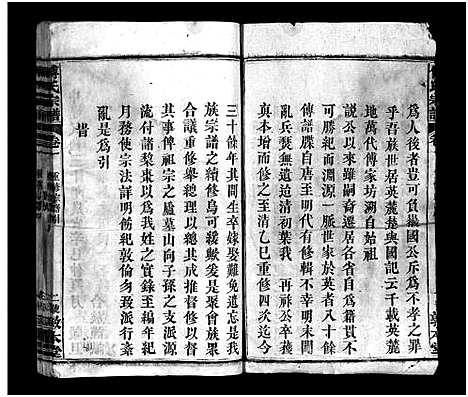 爲人後者豈可負纇國不孝之罪
乎吾族世居英麓叅與國記云千載英麓
地萬代傳家坊溯自始祖
公以來雖嗣裔遷居各省自爲籍貫不
可勝紀而淵源一脈世家於英者八十餘
傳譜牒自唐至明代有修輯不幸明末闖
亂兵燹無遺迨清初葉我 再祠公卒
本大道增而修之至清乙巳重修四次今又
三十餘年其間生卒嫁娶難免遺忘是我
族宗譜之續修烏可緩哉爰是聚會族衆
合議重修舉總理以總其成推督修以綱
其事俾祖宗之廬墓山向子孫之支派源
流付諸黎棗以爲我姓之實錄至編年紀
月務使宗法詳明倫紀敦篤派行不紊
亂是爲引
旹
傅氏宗譜
卷一
敦本堂